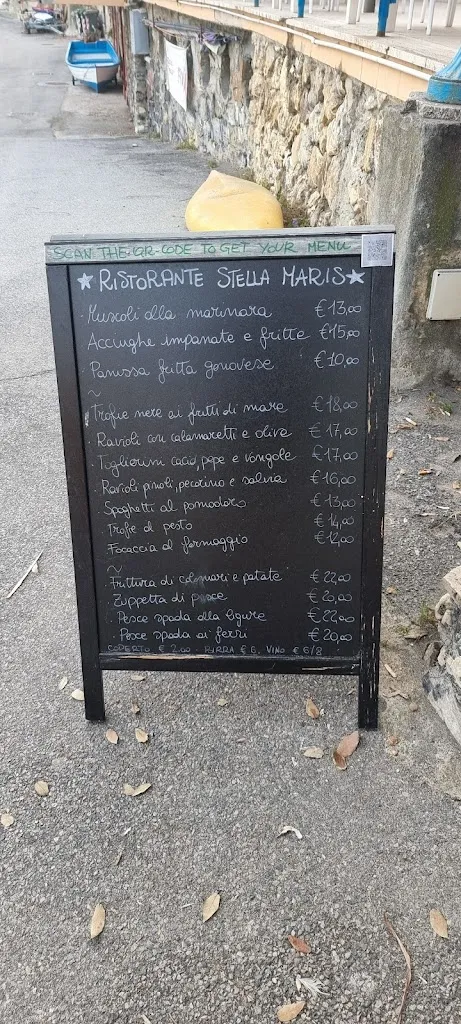 SCAN THE QR-CODE TO GET YOUR MENU
★ RISTORANTE STELLA MARIS ★
· Muscoli alla marinara €13,00
Acciughe impanate e fritte €15,00
· Panissa fritta genovese €10,00
~
· Trofie nere ai frutti di mare €18,00
· Ravioli con calamaretti e olive €17,00
· Taglierini cacio, pepe e vongole €17,00
· Ravioli pinoli, pecorino e salvia €16,00
· Spaghetti al pomodoro €13,00
· Trofie al pesto €14,00
· Focaccia al formaggio €12,00
~
· Frittura di calamari e patate €22,00
· Zuppetta di pesce €20,00
· Pesce spada alla ligure €22,00
· Pesce spada ai ferri €20,00
COPERTO € 2.00 · BIRRA € 6, VINO € 6/8